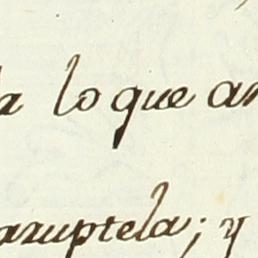 a lo que an
aruptela; y